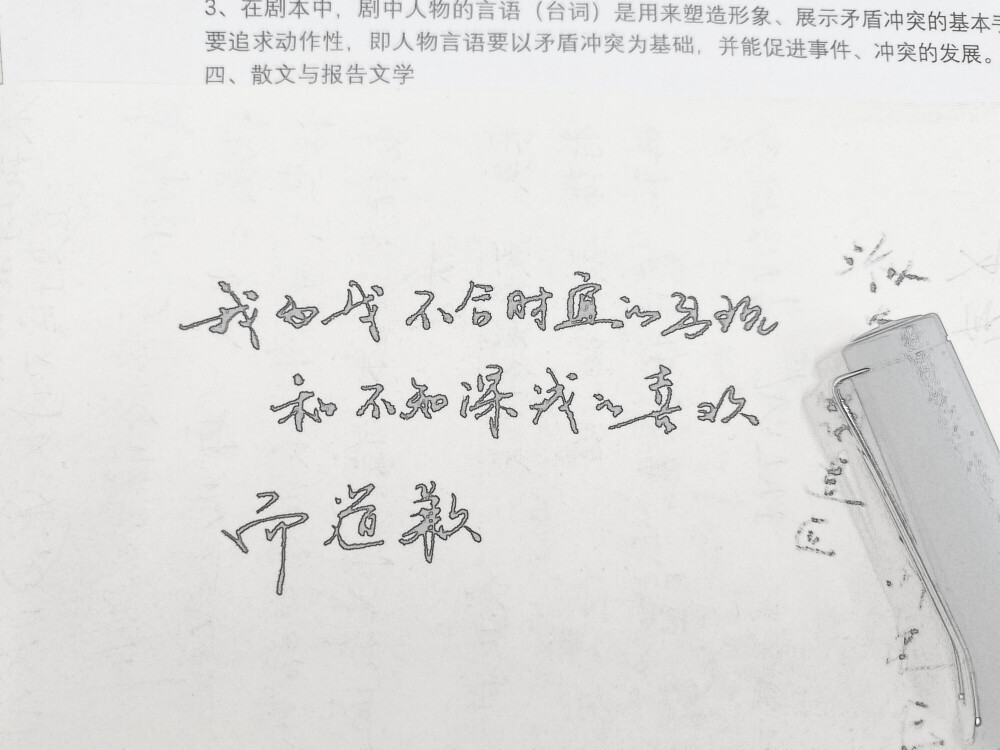 3、在剧本中，剧中人物的言语（台词）是用来塑造形象、展示矛盾冲突的基本手
要追求动作性，即人物言语要以矛盾冲突为基础，并能促进事件、冲突的发展。
四、散文与报告文学
我为我不合时宜的出现
和不知深浅的喜欢
而道歉